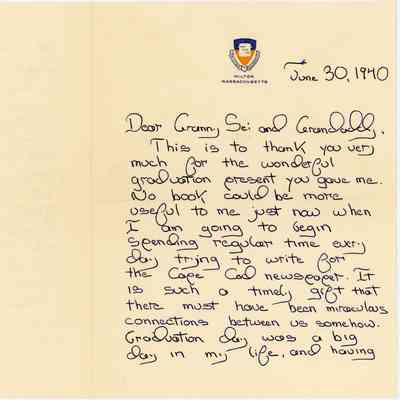 MILTON
MASSACHUSETTS
June 30, 1940
Dear Granny Sei and Grandaddy,
This is to thank you very
much for the wonderful
graduation present you gave me.
No book could be more
useful to me just now when
I am going to begin
spending regular time every
day trying to write for
the Cape Cod newspaper. It
is such a timely gift that
there must have been miraculous
connections between us somehow.
Graduation day was a big
day in my life, and having